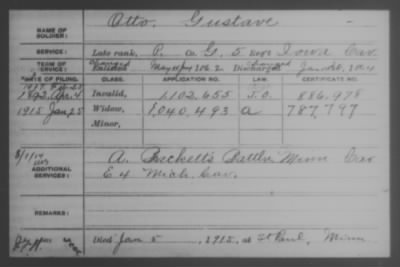 NAME OF SOLDIER: Otto, Gustave
SERVICE: Late rank, P. Co. G, 5 Reg't Iowa Cav.
TERM OF SERVICE: Enlisted May 186 2. Discharged Jan 186
DATE OF FILING. CLASS. APPLICATION NO. LAW. CERTIFICATE NO.
1892 Apr. 4 Invalid, 1.102.655 886.978
1915 Jan 25 Widow, 1,040,493 a 787,797
Minor,
ADDITIONAL SERVICES: A. Brackett's Battln. Minn Cav
E 4 Mich Cav.
REMARKS:
Died Jan 5, 1915, at St Paul, Minn